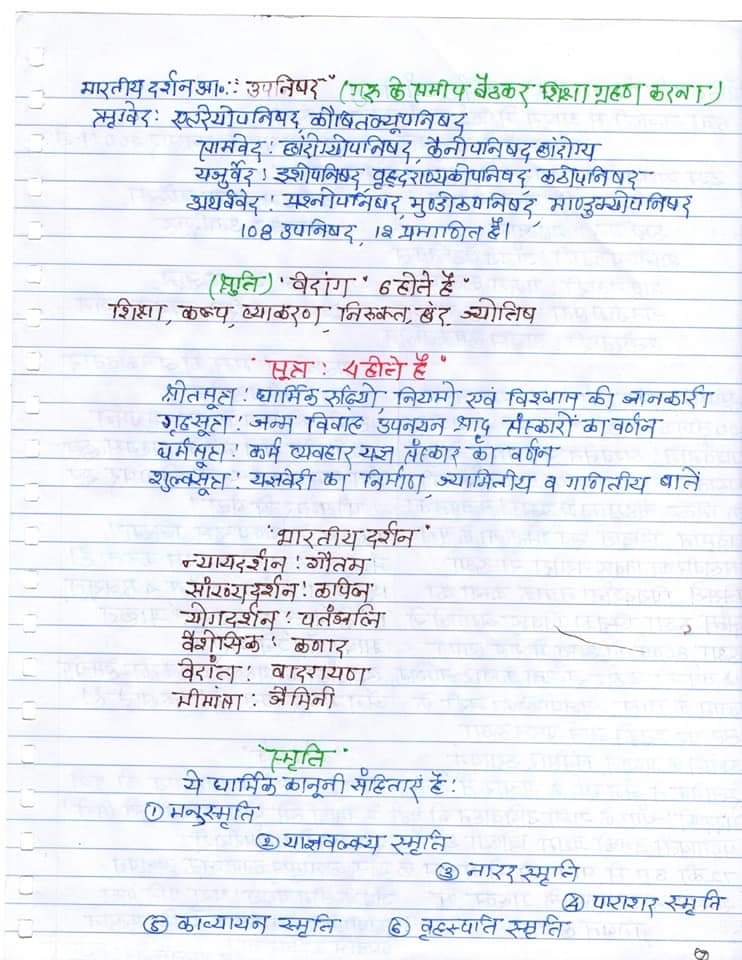 भारतीय दर्शन आ॰ :: उपनिषद" (गुरु के समीप बैठकर शिक्षा ग्रहण करना)
ऋग्वेद: एतरेयोपनिषद, कौषितक्यूपनिषद्
सामवेद: छांदोग्योपनिषद, कैनोपनिषद छांदोग्य
यजुर्वेद: इशोपनिषद, वृहदराण्यकोपनिषद, कठोपनिषद
अथर्ववेद: प्रश्नोपनिषद, मुण्डीकपनिषद, माण्डुक्योपनिषद
108 उपनिषद, 12 प्रमाणित है।
(श्रुति) "वेदांग" 6 होते है"
शिक्षा, कल्प, व्याकरण, निरुक्त, छंद, ज्योतिष
"सूत्र: 4 होते है"
श्रौतसूत्र: धार्मिक रुढियो, नियमो एवं विश्वास की जानकारी
गृहसूत्र: जन्म विवाह उपनयन श्राद्ध संस्कारों का वर्णन
धर्मसूत्र: कर्म व्यवहार यज्ञ संस्कार का वर्णन
शुल्वसूत्र: यज्ञवेरी का निर्माण, ज्यामितीय व गणितीय बातें
"भारतीय दर्शन"
न्यायदर्शन: गौतम
सांख्यदर्शन: कपिल
योगदर्शन: पतंजलि
वैशेसिक: कणाद
वेदांत: वादरायण
मीमांसा: जैमिनी
"स्मृति"
ये धार्मिक कानूनी संहिताएं है:
① मनुस्मृति
② याज्ञवल्क्य स्मृति
③ नारद स्मृति
④ पाराशर स्मृति
⑤ कात्यायन स्मृति ⑥ वृहस्पति स्मृति